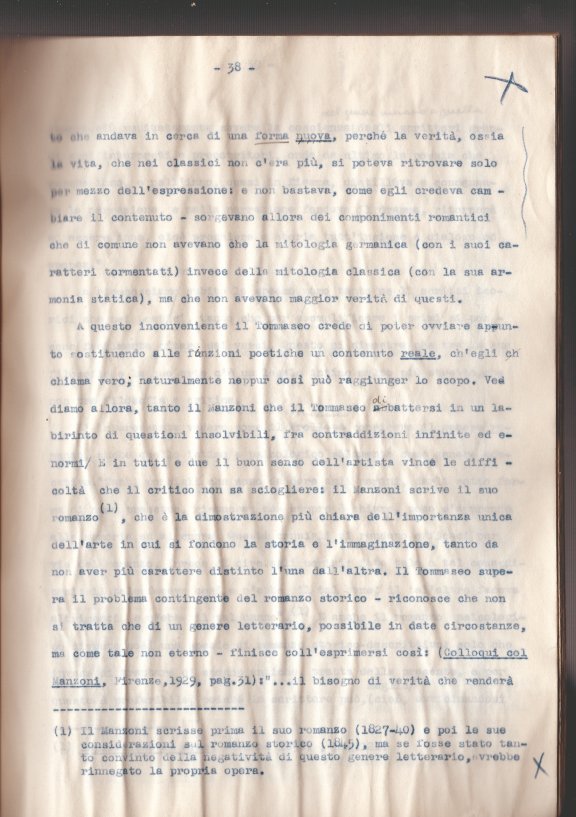 - 38 -
to che andava in cerca di una forma nuova, perché la verità, ossia
la vita, che nei classici non c'era più, si poteva ritrovare solo
per mezzo dell'espressione: e non bastava, come egli credeva cam -
biare il contenuto - sorgevano allora dei componimenti romantici
che di comune non avevano che la mitologia germanica (con i suoi ca-
ratteri tormentati) invece della mitologia classica (con la sua ar-
monia statica), ma che non avevano maggior verità di questi.
A questo inconveniente il Tommaseo crede di poter ovviare appun-
to sostituendo alle fúnzioni poetiche un contenuto reale, ch'egli ch
chiama vero; naturalmente neppur così può raggiunger lo scopo. Ved
diamo allora, tanto il Manzoni che il Tommaseo dibattersi in un la-
birinto di questioni insolvibili, fra contraddizioni infinite ed e-
normi/ E in tutti e due il buon senso dell'artista vince le diffi -
coltà che il critico non sa sciogliere: il Manzoni scrive il suo
romanzo(1), che è la dimostrazione più chiara dell'importanza unica
dell'arte in cui si fondono la storia e l'immaginazione, tanto da
non aver più carattere distinto l'una dall'altra. Il Tommaseo supe-
ra il problema contingente del romanzo storico - riconosce che non
si tratta che di un genere letterario, possibile in date circostanze,
ma come tale non eterno - finisce coll'esprimersi così: (Colloqui col
Manzoni, Firenze,1929, pag.31):"...il bisogno di verità che renderà
----------------------------
(1) Il Manzoni scrisse prima il suo romanzo (1827-40) e poi le sue
considerazioni sul romanzo storico (1845), ma se fosse stato tan-
to convinto della negatività di questo genere letterario,avrebbe
rinnegato la propria opera.